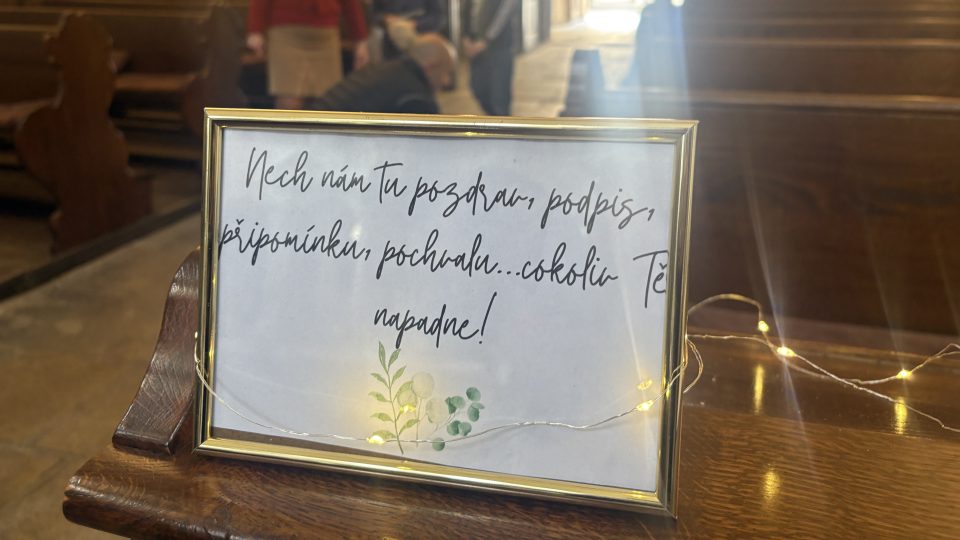 Nech nám tu pozdrav, podpis,
připomínku, pochvalu...cokoliv Tě
napadne!